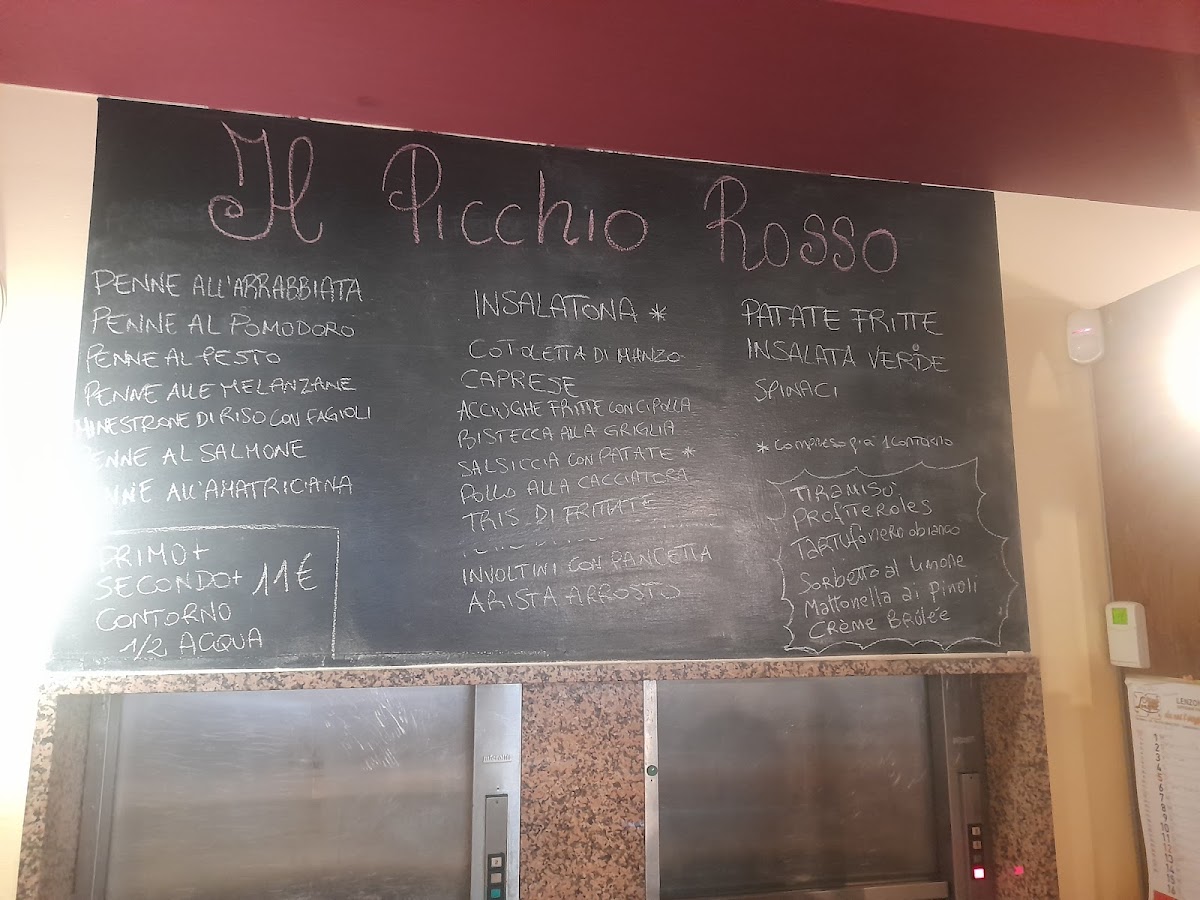 Il Picchio Rosso
PENNE ALL'ARRABBIATA
PENNE AL POMODORO
PENNE AL PESTO
PENNE ALLE MELANZANE
MINESTRONE DI RISO CON FAGIOLI
PENNE AL SALMONE
PENNE ALL'AMATRICIANA
PRIMO+
SECONDO+ 11€
CONTORNO
1/2 ACQUA
INSALATONA *
COTOLETTA DI MANZO
CAPRESE
ACCIUGHE FRITTE CON CIPOLLA
BISTECCA ALLA GRIGLIA
SALSICCIA CON PATATE *
POLLO ALLA CACCIATORA
TRIS DI FRITTATE
INVOLTINI CON PANCETTA
ARISTA ARROSTO
PATATE FRITTE
INSALATA VERDE
SPINACI
* compreso già 1 contorno
TIRAMISÙ
PROFITEROLES
TARTUFO nero o bianco
Sorbetto al limone
Mattonella ai Pinoli
Crème Brûlée
1
2
3
4
5
6
7
8
9
10